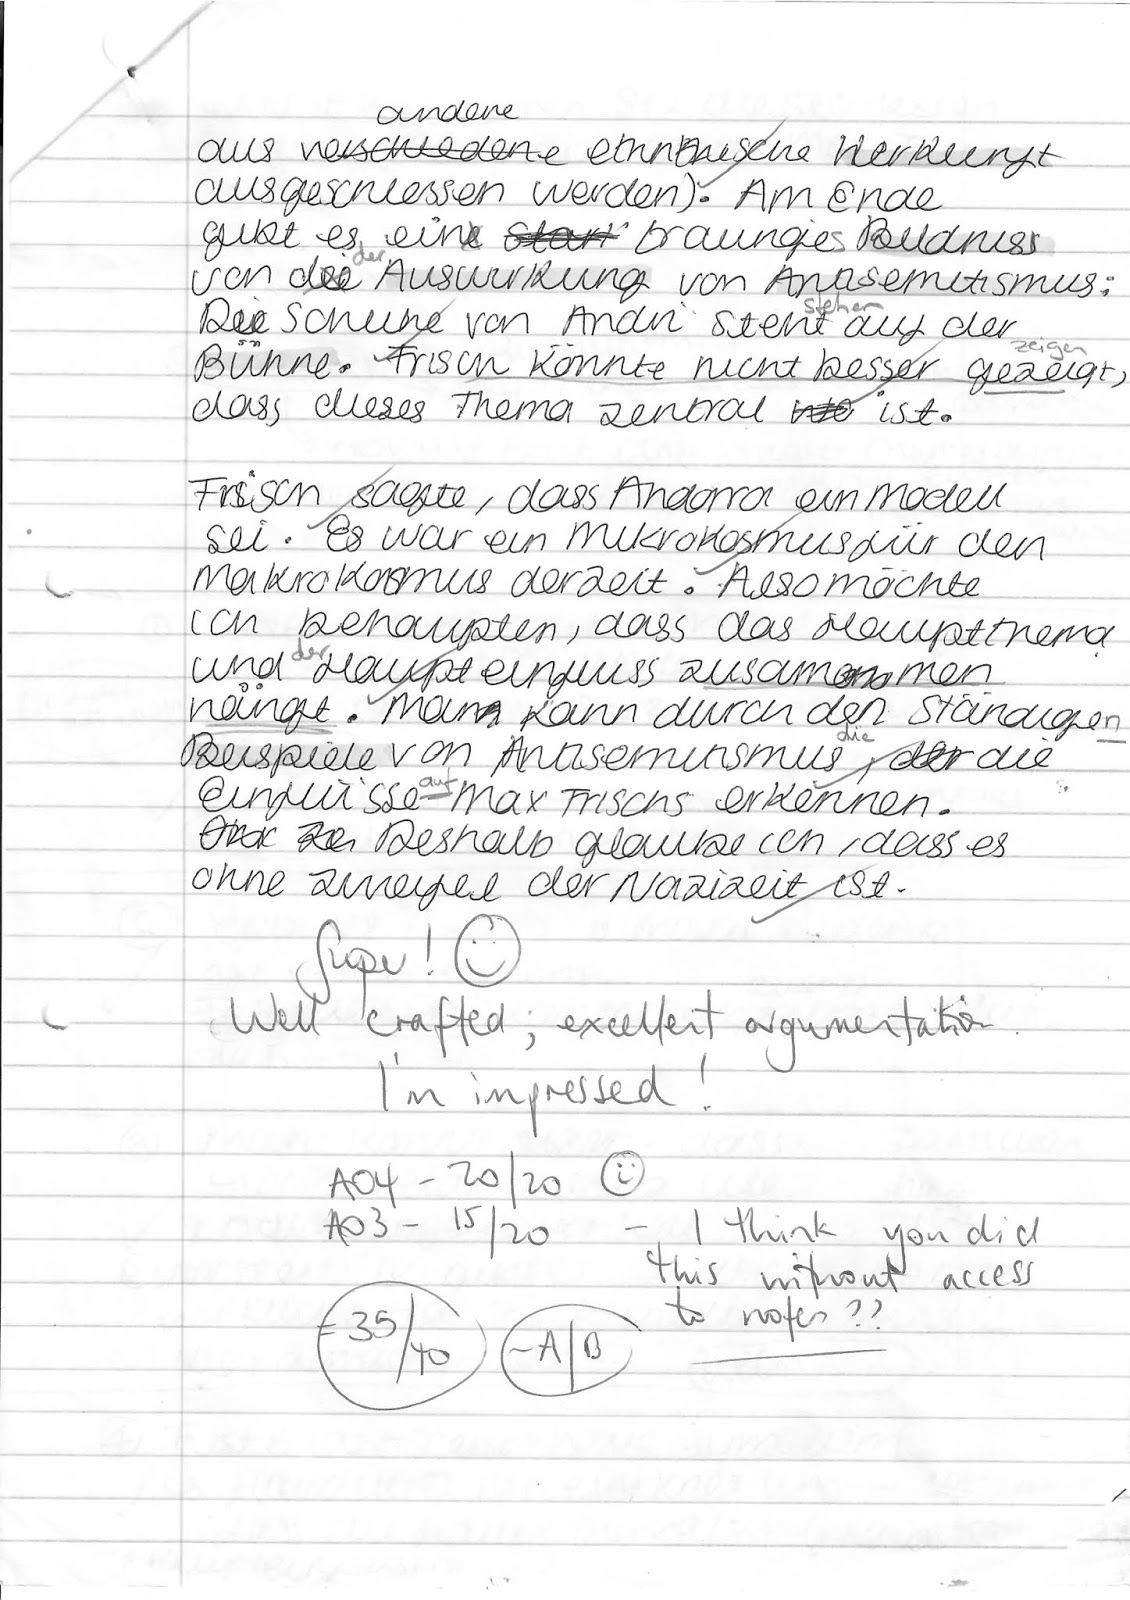 andere
aus verschiedene ethnische Herkunft
ausgeschlossen werden). Am Ende
gibt es ein trauriges Bildniss
der
von die Auswirkung von Antisemitismus:
stehen
Die Schuhe von Andri steht auf der
Bühne. Frisch könnte nicht besser gezeigt,
zeigen
dass dieses Thema zentral ist.
Frisch sagte, dass Andorra ein Modell
sei. Es war ein Mikrokosmus für den
Makrokosmus derzeit. Also möchte
ich behaupten, dass das Hauptthema
und der Haupteinfluss zusammen
hängt. Man kann durch den Ständigen
Beispiele von Antisemitismus, die die
Einflüsse auf Max Frischs erkennen.
Deshalb glaube ich, dass es
ohne zweifel der Nazizeit ist.
Super!
Well crafted; excellent argumentation.
I'm impressed!
A04 - 20/20
A03 - 15/20 - I think you did
this without access
to notes??
= 35/40 ~A/B